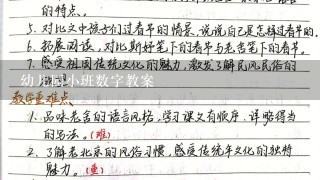 的特点。
5. 对比文中孩子们过春节的情景,说说自己是怎样过春节的。
6. 拓展阅读,对比斯妤笔下的春节与老舍笔下的春节。
7. 感受祖国传统文化的魅力,激发了解民风民俗的
幼儿园小班数字教案
教学重难点
1. 品味老舍的语言风格,学习课文有顺序、详略得当
的写法。(难)
2. 了解老北京的风俗习惯,感受传统年文化的独特
魅力。(重)